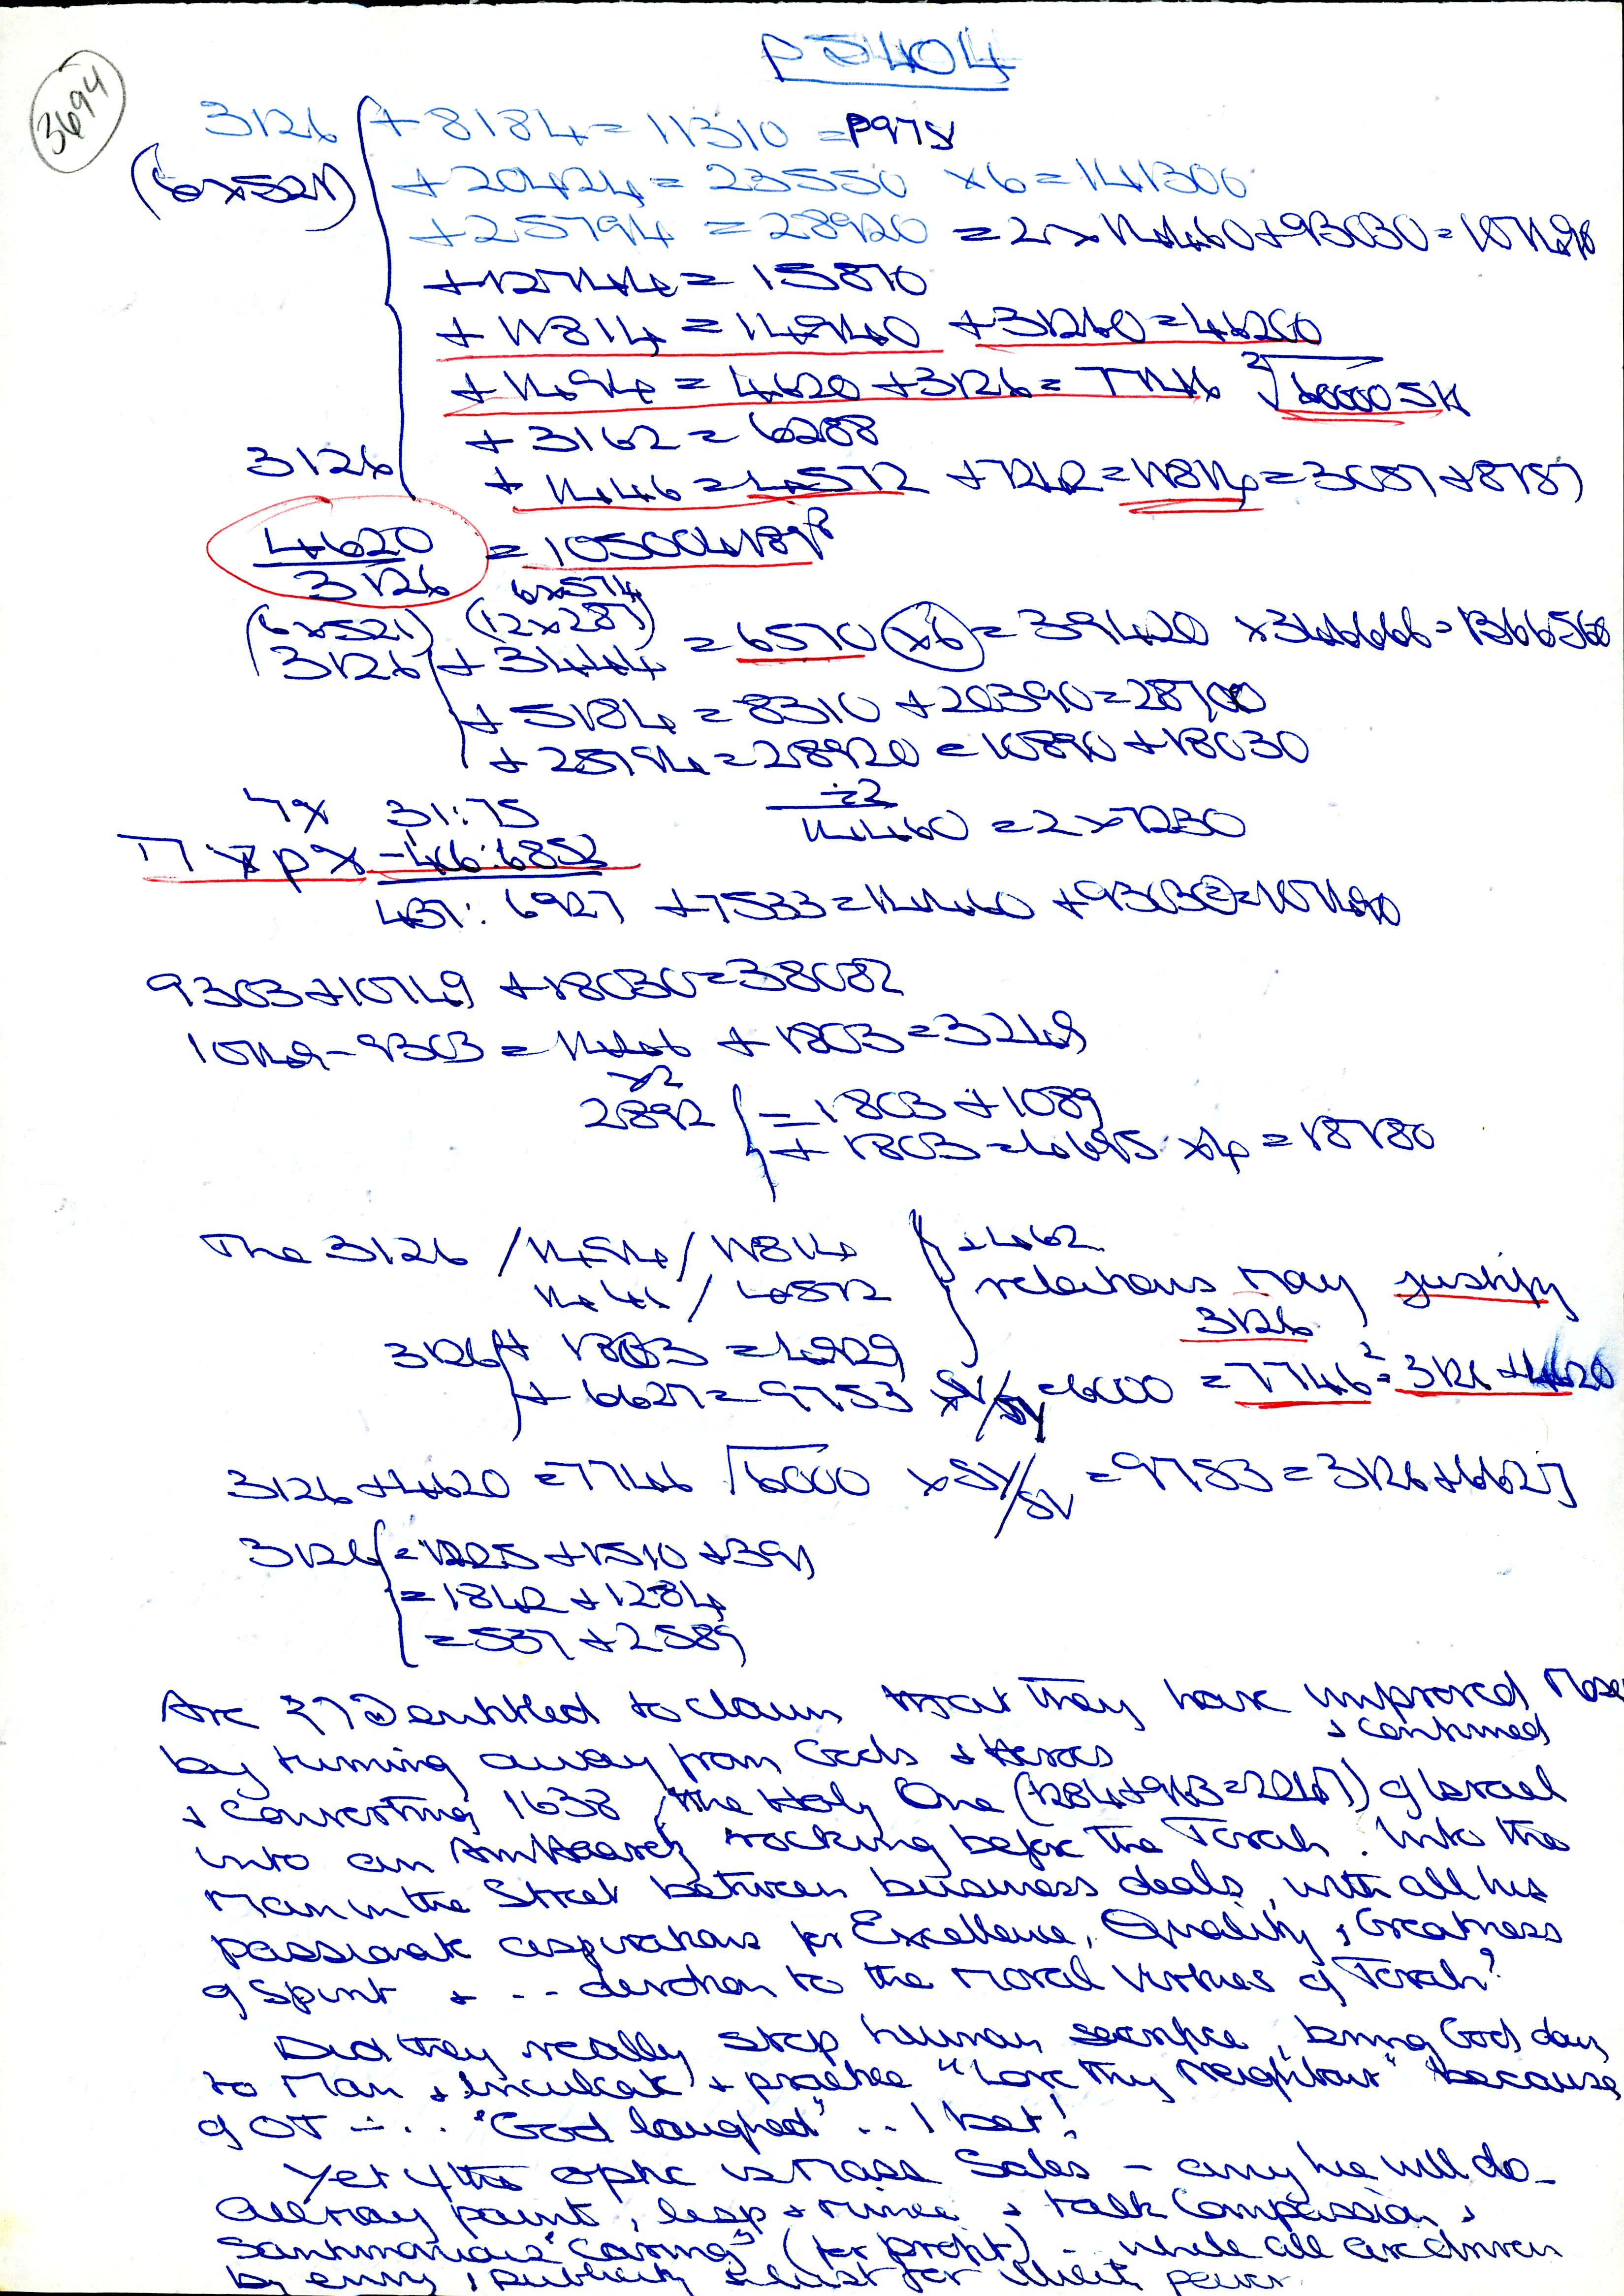 3694
P 5404
3126 + 8184 = 11310 = P975
(6x521) + 20424 = 23550 x6 = 141300
+ 25794 = 28920 = 2 x 14460 + 93030 = 107490
+ 12744 = 15870
+ 11814 = 14940 + 31260 = 46200
+ 1494 = 4620 + 3126 = 7746
+ 3162 = 6288
3126 + 1446 = 4572 + 7242 = 11814 = 3627 + 8187
4620 / 3126 = 
6x574
(6x521) (12x287)
3126 + 3444 = 6570 (x6) = 39420 x 346666 = 1366560
+ 5184 = 8310 + 20390 = 28700
+ 25794 = 28920 = 10890 + 18030
÷2
14460 = 2 x 7230
31:75
- 46:6852
437: 6927 + 7533 = 14460 + 93030 = 107490
9303 + 10749 + 18030 = 38082
10749 - 9303 = 1446 + 1803 = 3249
x2
2892 = 1803 + 1089
+ 1803 = 4695 x4 = 18780
The 3126 / 1494 / 11814 + 462
1446 / 4572 relations may justify
3126
3126 + 1803 = 4929
+ 6627 = 9753 = 6000 = 7746² = 3126 + 4620
3126 + 4620 = 7746 √6000 = 9753 = 3126 + 6627
3126 = 1225 + 1510 + 391
= 1842 + 1284
= 537 + 2589
Are entitled to claim that they have improved
& continued
by turning away from Gods & Heroes
& converting 1638, the Holy One (1284+963=2247) of Israel
into an AmHaaretz rocking before the Torah. Into the
Man in the Street between business deals, with all his
passionate aspirations for Excellence, Quality, & Greatness
of Spirit & -- devotion to the moral virtues of Torah?
Did they really stop human sacrifice, bring God down
to Man & inculcate & practice "Love Thy Neighbour" because
of OT -... "God laughed" .. I bet!
Yet if the optic is Mass Sales - any lie will do -
All may paint, leap & mince & talk Compassion &
Sanctimonious "Caring" (for profit) - while all are driven
by envy, publicity & lust for power.